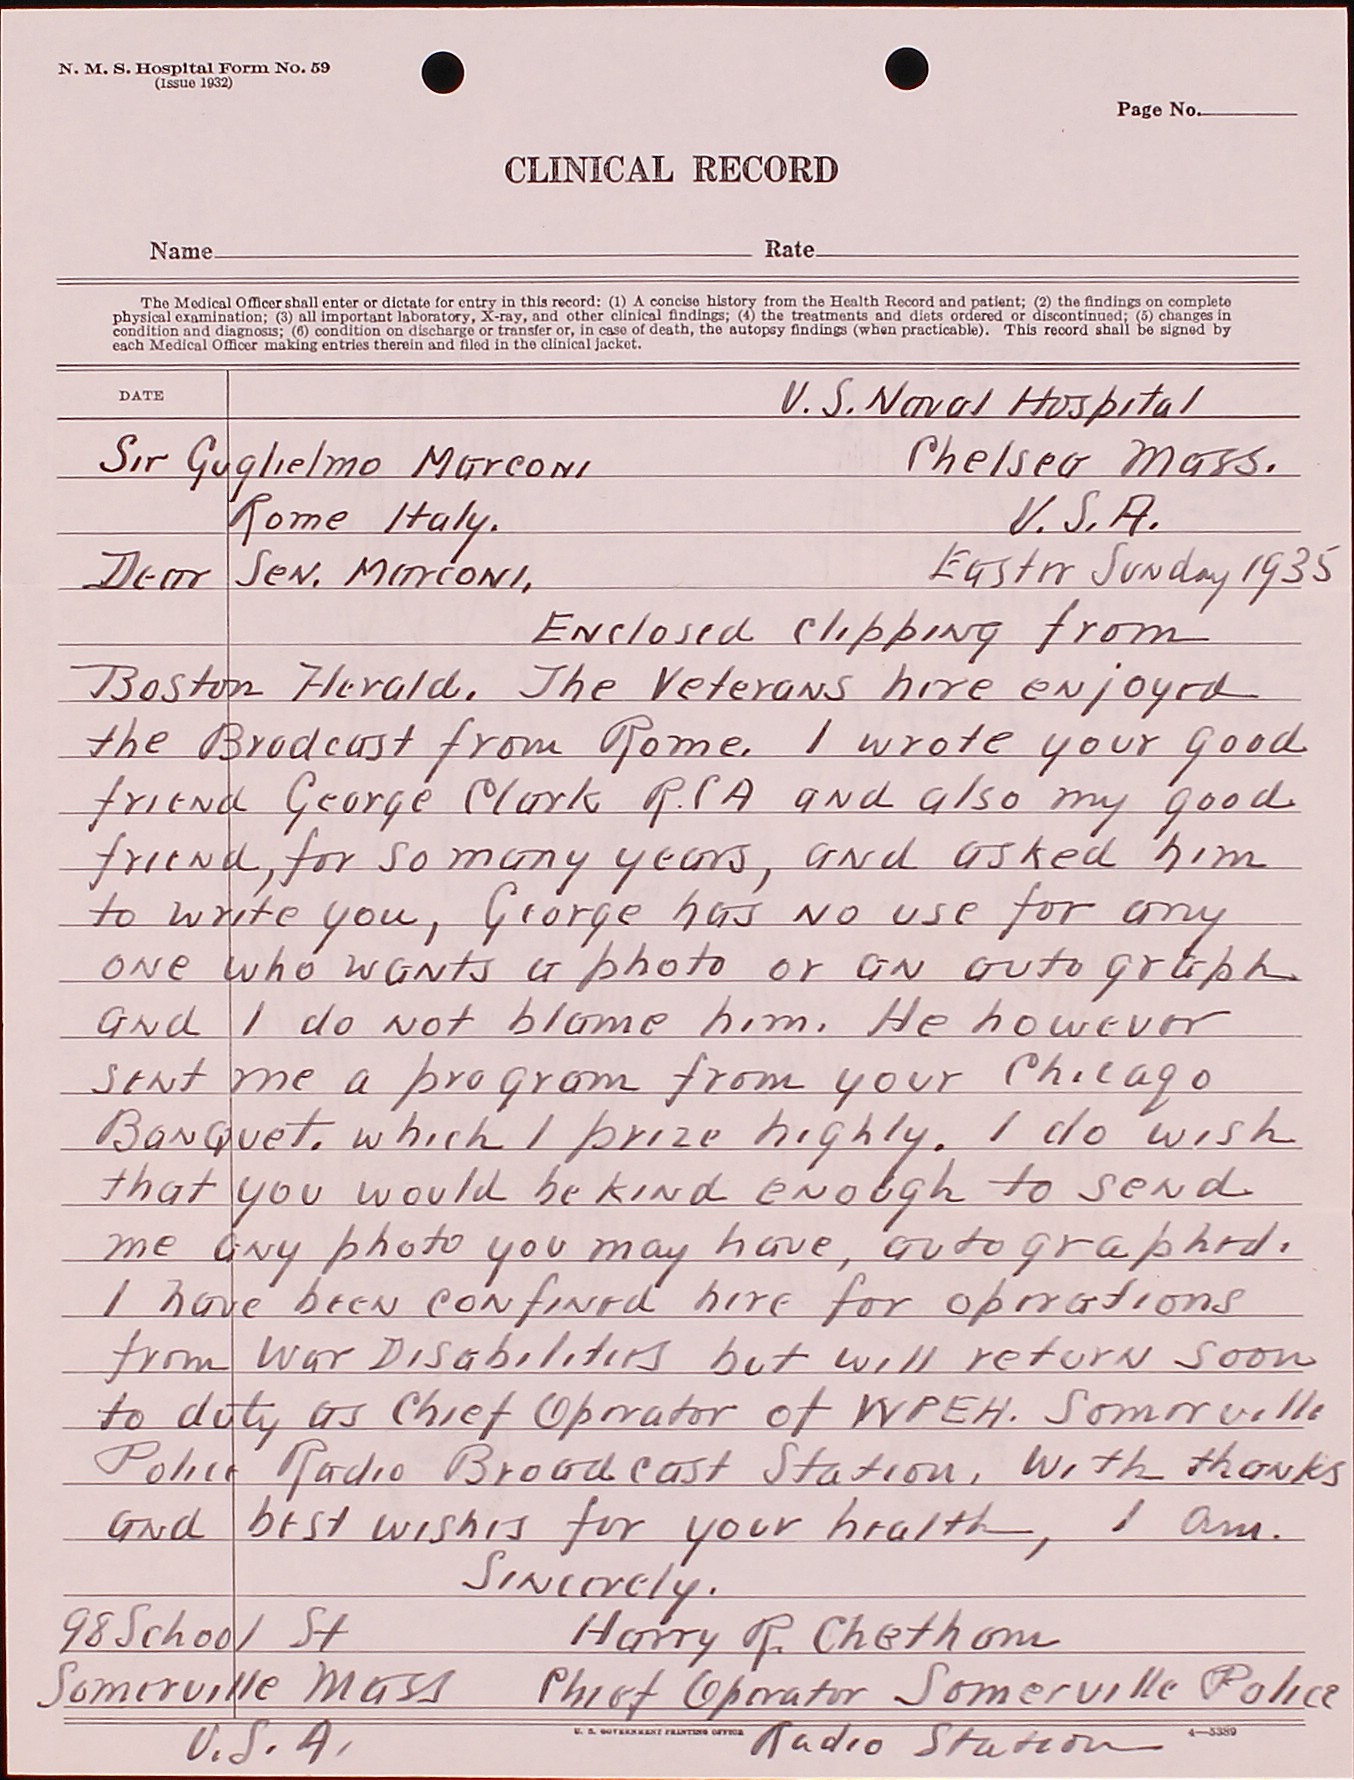 N. M. S. Hospital Form No. 59
(Issue 1932)
Page No.
CLINICAL RECORD
Name
Rate
The Medical Officer shall enter or dictate for entry in this record: (1) A concise history from the Health Record and patient; (2) the findings on complete
physical examination; (3) all important laboratory, X-ray, and other clinical findings; (4) the treatments and diets ordered or discontinued; (5) changes in
condition and diagnosis; (6) condition on discharge or transfer or, in case of death, the autopsy findings (when practicable). This record shall be signed by
each Medical Officer making entries therein and filed in the clinical jacket.
DATE
U. S. Naval Hospital
Sir Guglielmo Marconi Chelsea Mass.
Rome Italy. U. S. A.
Dear Sen. Marconi, Easter Sunday 1935
Enclosed clipping from
Boston Herald. The Veterans here enjoyed
the Brodcast from Rome. I wrote your good
friend George Clark R.C.A and also my good
friend, for so many years, and asked him
to write you, George has no use for any
one who wants a photo or an autograph
and I do not blame him. He however
sent me a program from your Chicago
Banquet. which I prize highly. I do wish
that you would be kind enough to send
me any photo you may have, autographed.
I have been confined here for operations
from War Disabilities but will return soon
to duty as Chief Operator of WPEH. Somerville
Police Radio Broadcast Station. With thanks
and best wishes for your health, I am.
Sincerely.
98 School St Harry R. Chetham
Somerville Mass Chief Operator Somerville Police
U. S. A. Radio Station
U. S. GOVERNMENT PRINTING OFFICE 4—5389